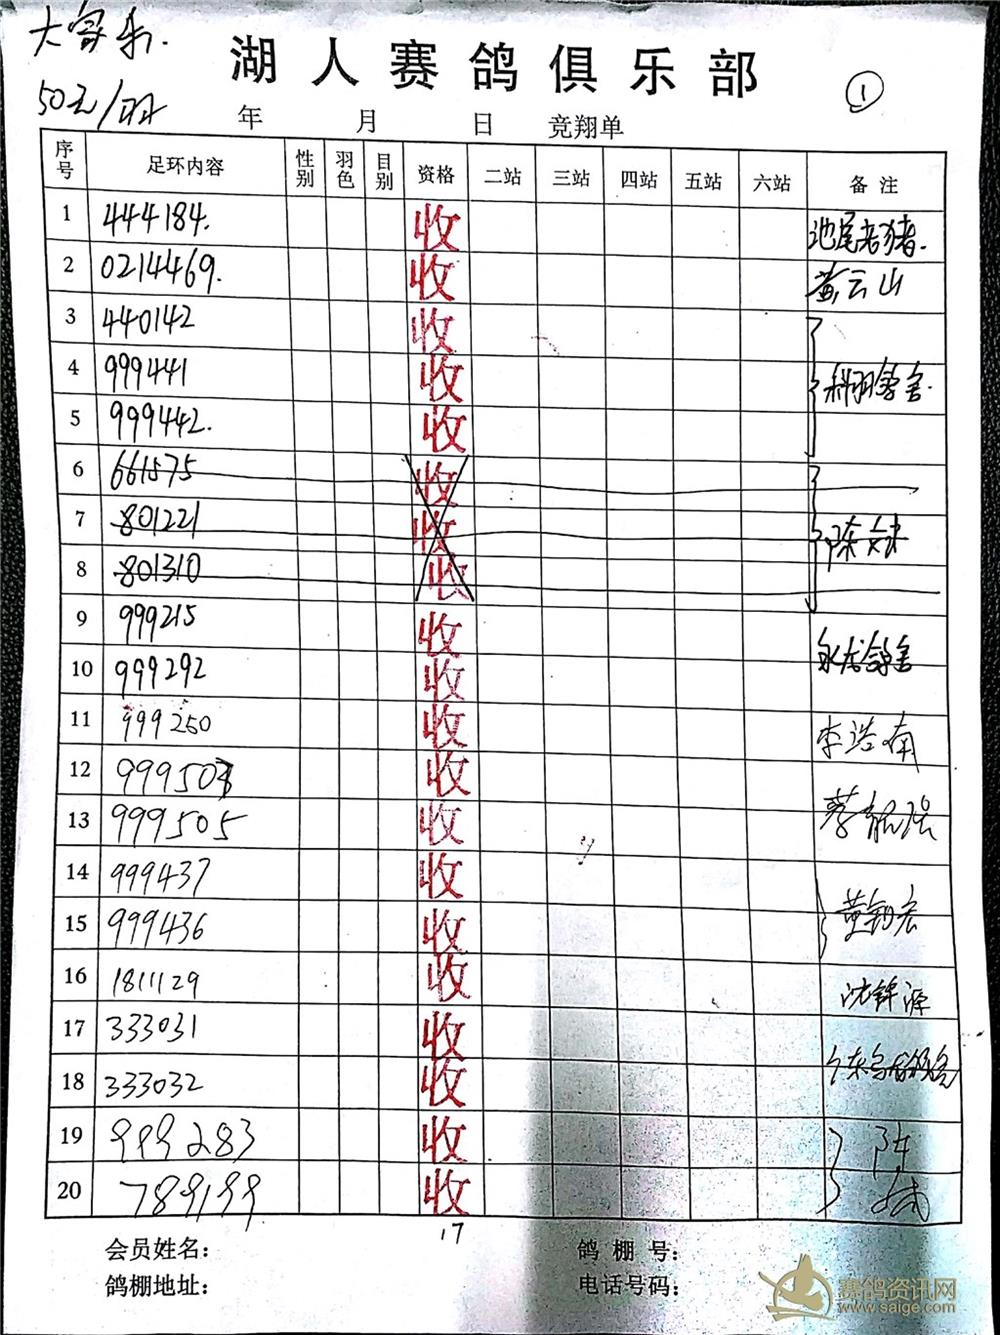 大家乐.
湖人赛鸽俱乐部
①
50元/羽
年 月 日 竞翔单
序号 足环内容 性别 羽色 目别 资格 二站 三站 四站 五站 六站 备注
1 444184. 收 池尾老猪.
2 0214469. 收 黄云山
3 440142 收
4 999441 收 翔羽鸽舍.
5 999442. 收
6 661575 收
7 801221 收 陈
8 801310 收
9 999215 收 永龙鸽舍
10 999292 收
11 999250 收 李浩南
12 999503 收
13 999505 收 蔡龙强
14 999437 收
15 999436 收 黄钧宏
16 1811129 收 沈锌源
17 333031 收
18 333032 收
19 999283 收
20 789199 收
17
会员姓名: 鸽棚号:
鸽棚地址: 电话号码:
赛鸽资讯网
www.saige.com